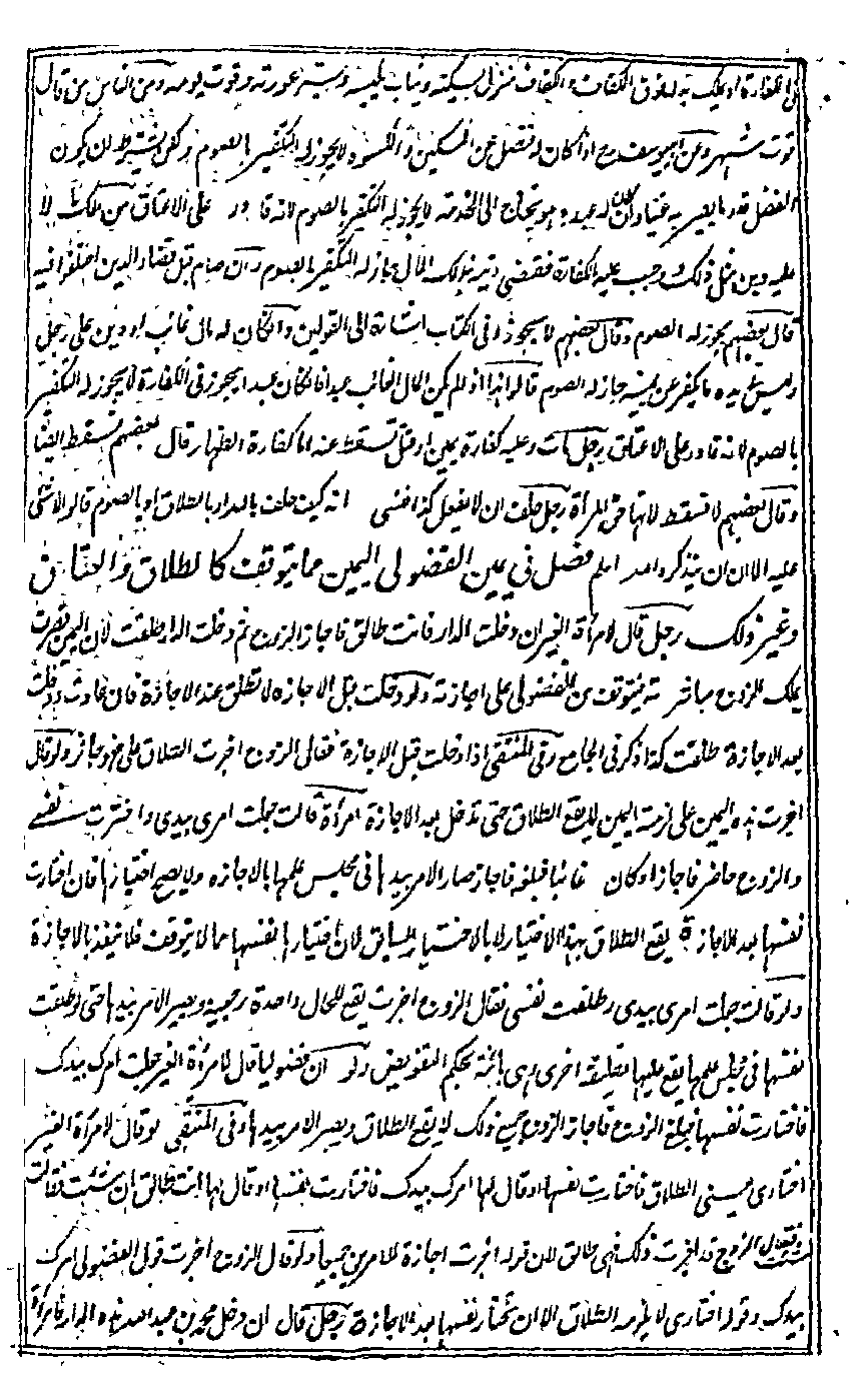 في الكفارة او يملك به لفوق الكفاف والكفاف منزل يسكنه وثياب يلبسه ويستر عورته وقوت يومه ومن الناس من قال
قوت شهر وعن ابي يوسف رح اذا كان له فضل عن المسكن والكسوة لا يجوز له التكفير بالصوم ولكن يشترط ان يكون
الفضل قدر ما يصير به غنيا وان كان له عبد وهو يحتاج الى الخدمة لا يجوز له التكفير بالصوم لانه قادر على الاعتاق من ملك مالا
عليه دين مثل ذلك وجب عليه الكفارة فقضى دينه بذلك المال جاز له التكفير بالصوم وان صام قبل قضاء الدين اختلفوا فيه
قال بعضهم يجوز له الصوم وقال بعضهم لا يجوز وفي الكتاب اشارة الى القولين وان كان له مال غائب او دين على رجل
وليس في يده ما يكفر عن يمينه جاز له الصوم قالوا هذا اذا لم يكن المال الغائب عبدا فان كان عبدا يجوز في الكفارة لا يجوز له التكفير
بالصوم لانه قادر على الاعتاق رجل مات وعليه كفارة يمين او قتل تسقط عنه اما كفارة الظهار قال بعضهم تسقط ايضا
وقال بعضهم لا تسقط لانها حق المرأة رجل حلف ان لا يفعل كذا فنسي انه كيف حلف بالله او بالطلاق او بالصوم قالوا لا شئ
عليه الا ان يتذكر والله اعلم فصل في يمين الفضولي اليمين مما يتوقف كالطلاق والعتاق
وغير ذلك رجل قال لامرأة الغير ان دخلت الدار فانت طالق فاجاز الزوج ثم دخلت الدار طلقت لان اليمين تصرف
يملك الزوج مباشرته فيتوقف من الفضولي على اجازته ولو دخلت قبل الاجازة لا تطلق عند الاجازة فان عادت ودخلت
بعد الاجازة طلقت كذا ذكر في الجامع وفي المنتقى اذا دخلت قبل الاجازة فقال الزوج اجزت الطلاق علي فهو جائز ولو قال
اجزت هذه اليمين علي لزمته اليمين ولا يقع الطلاق حتى تدخل بعد الاجازة امرأة قالت جعلت امري بيدي واخترت نفسي
والزوج حاضر فاجاز او كان غائبا فبلغه فاجاز صار الامر بيدها في مجلس علمها بالاجازة ولا يصح اختيارها فان اختارت
نفسها بعد الاجازة يقع الطلاق بهذا الاختيار لا بالاختيار السابق لان اختيارها نفسها مما لا يتوقف فلا ينفذ بالاجازة
ولو قالت جعلت امري بيدي وطلقت نفسي فقال الزوج اجزت يقع للحال واحدة رجعية ويصير الامر بيدها حتى لو طلقت
نفسها في مجلس علمها يقع عليها تطليقة اخرى اى بائنة بحكم التفويض ولو ان فضوليا قال لامرأة الغير جعلت امرك بيدك
فاختارت نفسها فبلغ الزوج فاجاز الزوج جميع ذلك لا يقع الطلاق ويصير الامر بيدها وفي المنتقى لو قال لامرأة الغير
اختاري يعني الطلاق فاختارت نفسها او قال لها امرك بيدك فاختارت نفسها او قال لها انت طالق ان شئت فقالت
شئت فقال الزوج قد اجزت ذلك فهي طالق لان قوله اجزت اجازة للامرين جميعا ولو قال الزوج اجزت قول الفضولي امرك
بيدك وقوله اختاري لا يلزمه الطلاق الا ان تختار نفسها بعد الاجازة رجل قال ان دخل محمد بن عبد الله هذه الدار فامرأة